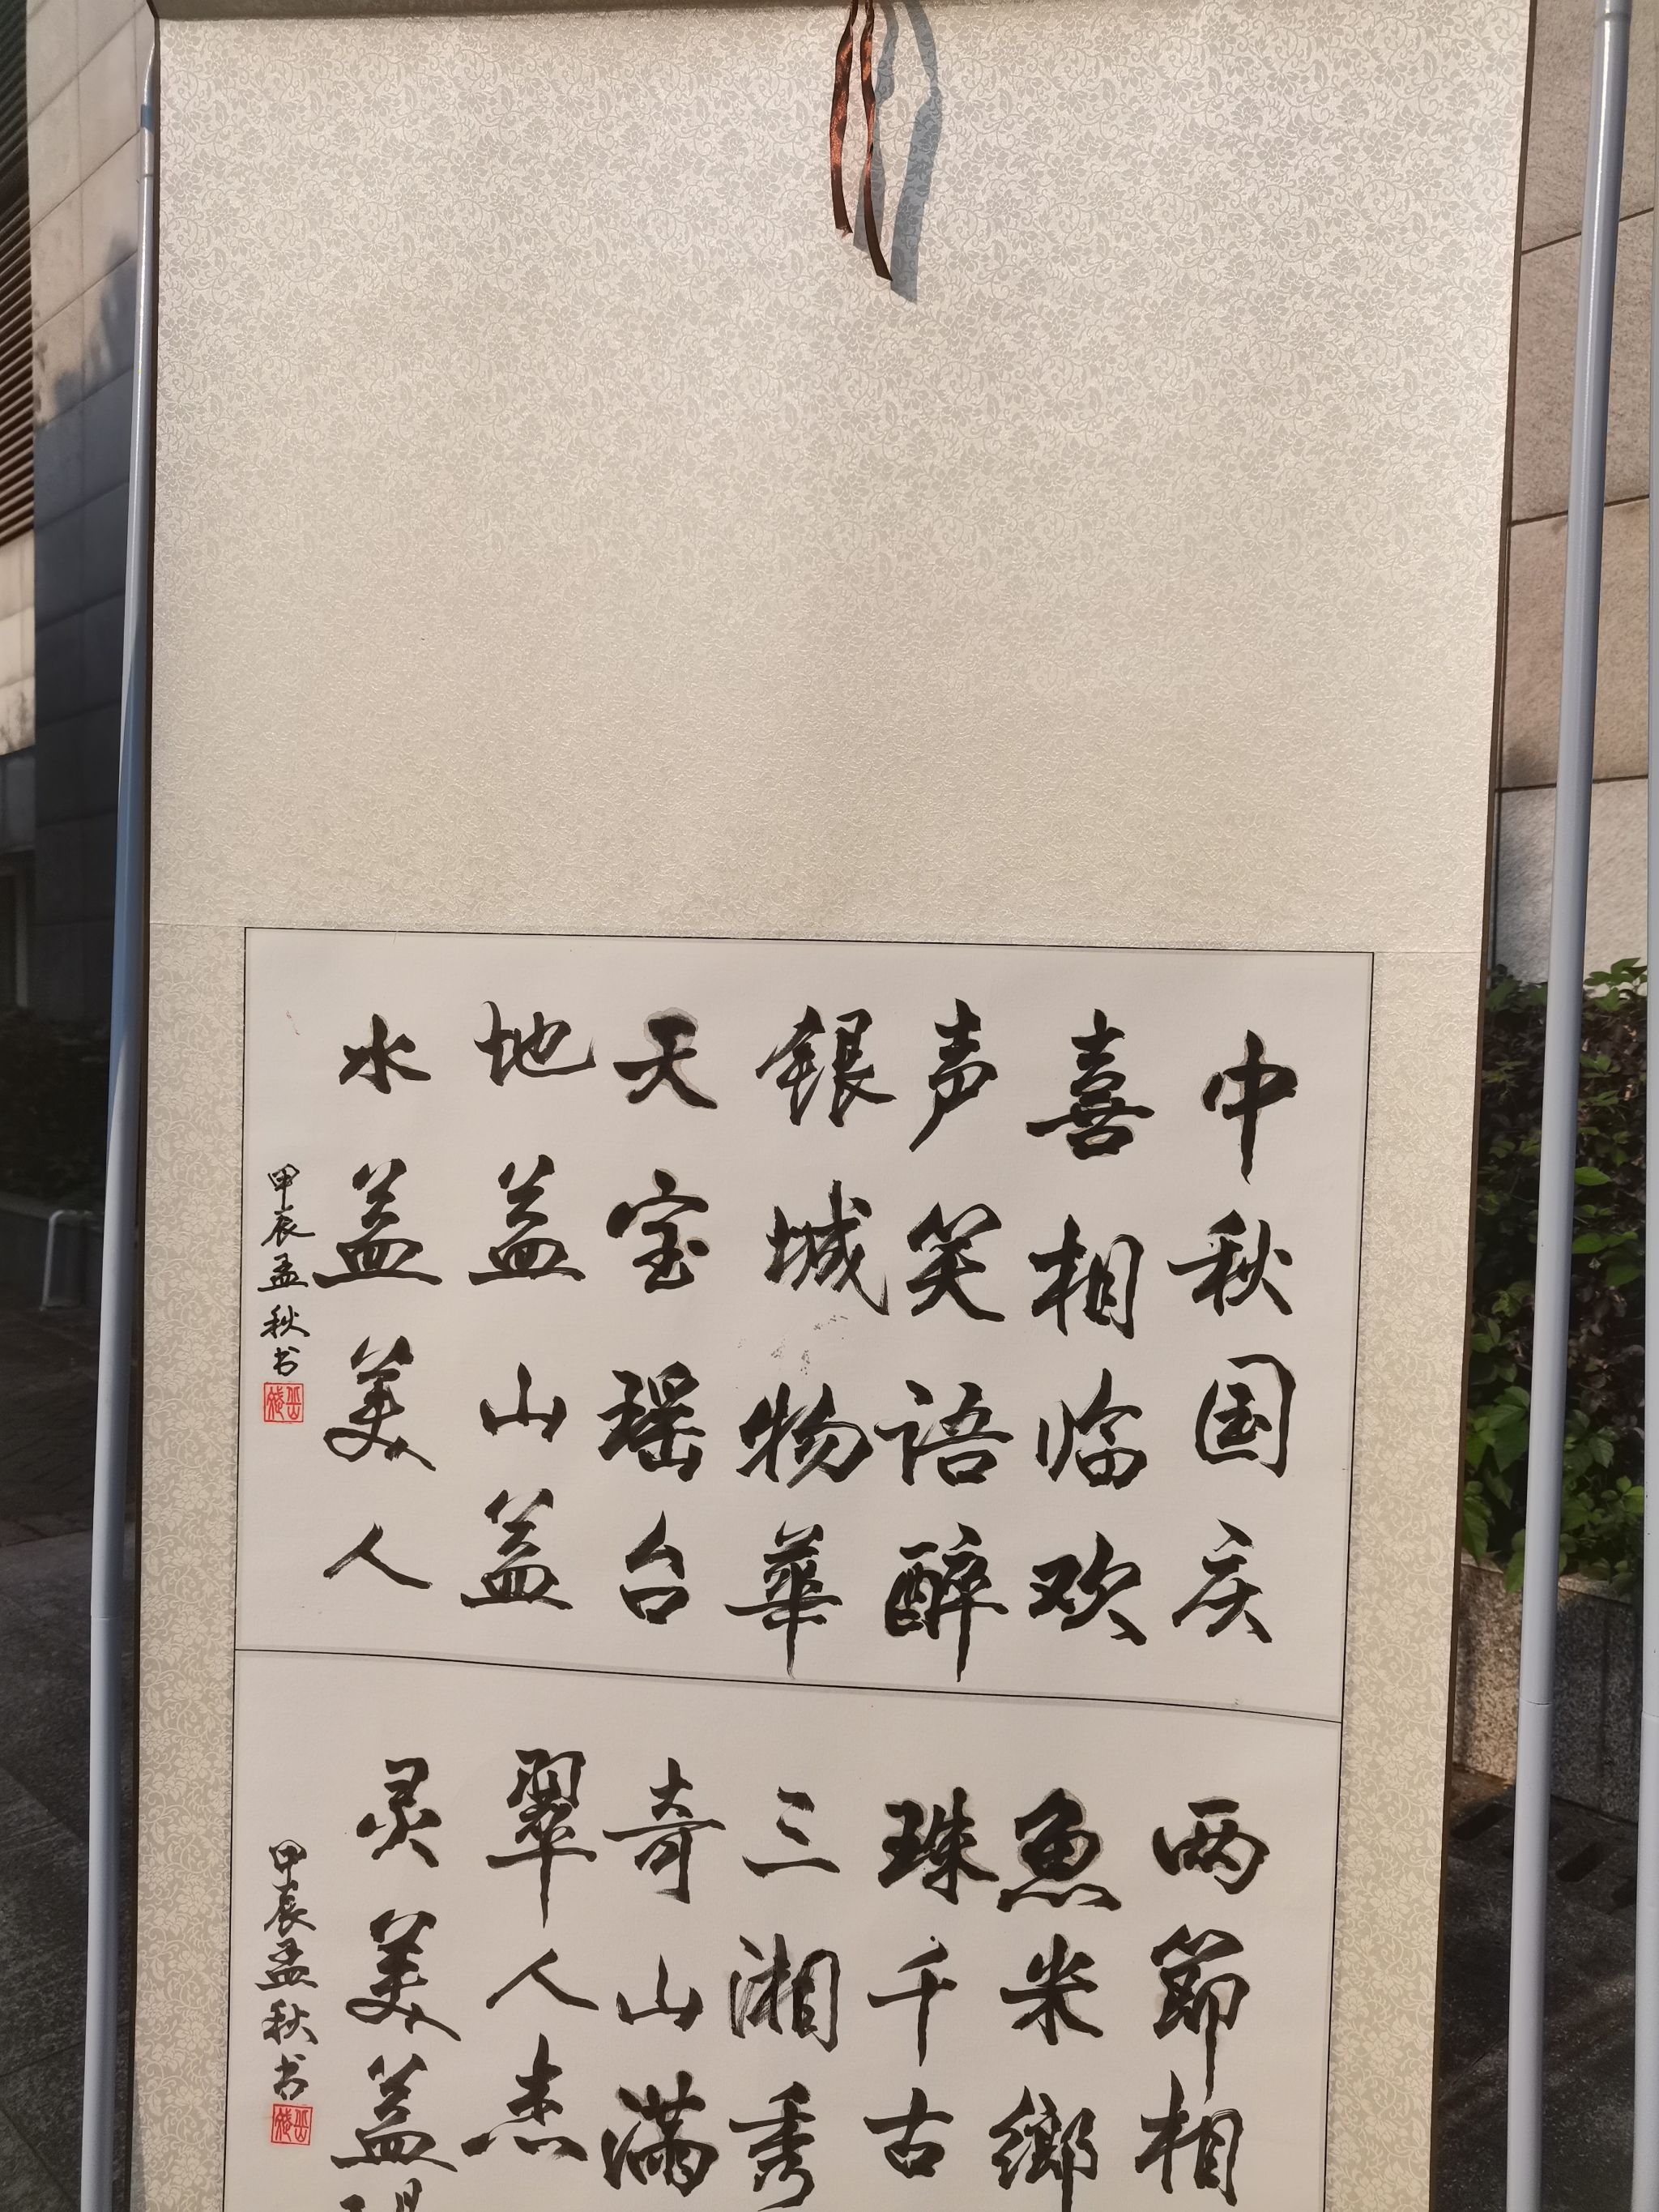 中秋国庆
喜相临欢
声笑语醉
银城物華
天宝瑶台
地益山益
水益美人
甲辰孟秋书
两節相
魚米鄉
珠千古
三湘秀
奇山满
翠人杰
灵美益
甲辰孟秋书